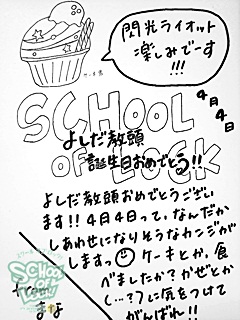 閃光ライオット
楽しみでーす
!!!
SCHOOL
OF LOCK
4月4日
よしだ教頭
誕生日おめでとう!!
よしだ教頭おめでとうござい
ます!! 4月4日って、なんだか
しあわせになりそうなカンジが
しますっ ケーキとか、食
べましたか?かぜとか
(…?)に気をつけて
がんばれ!!
from
まな
SCHOOL
OF LOCK!